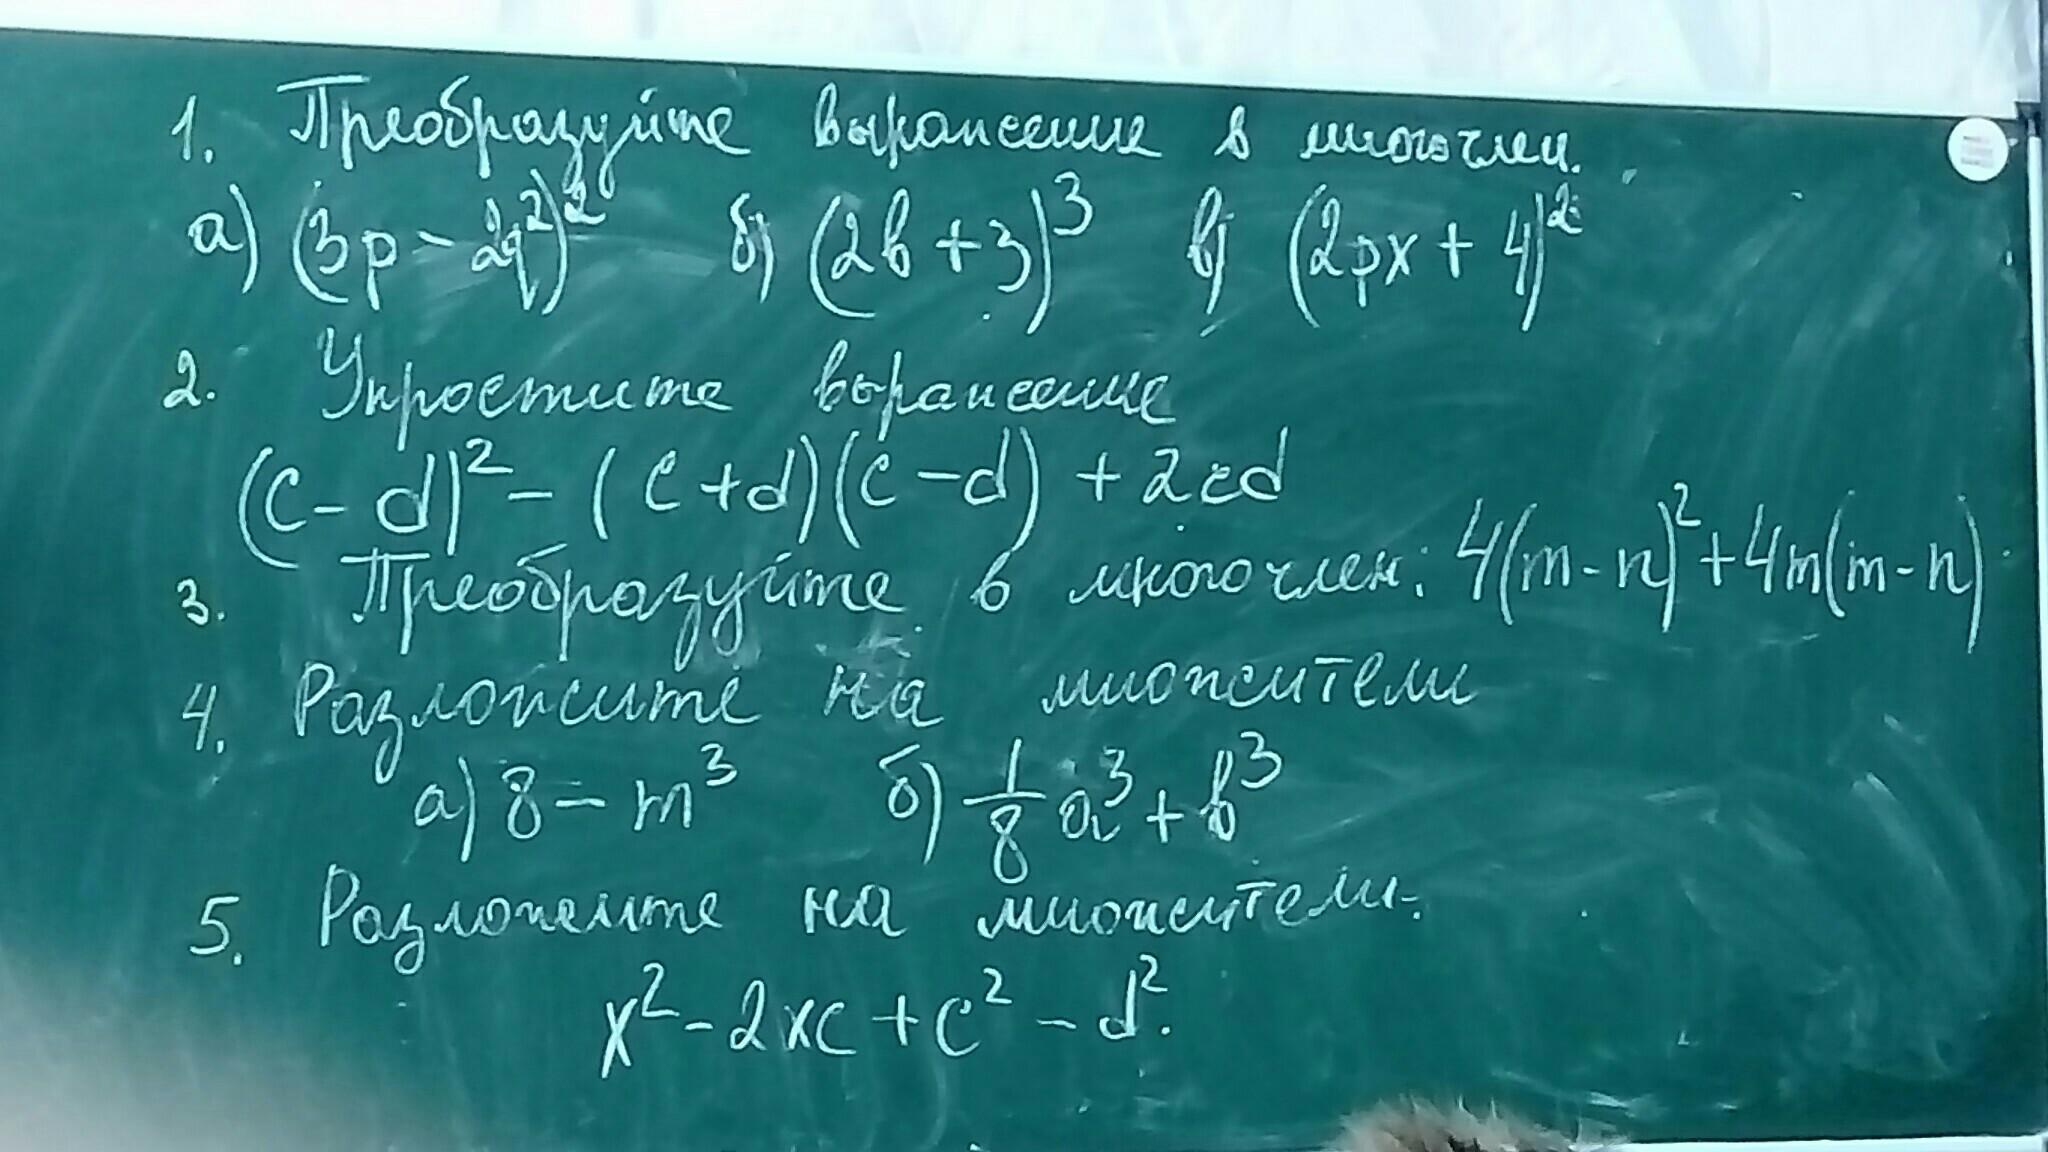 1. Преобразуйте выражение в многочлен.
а) (3p - 2q²)² б) (2b + 3)³ в) (2px + 4)²
2. Упростите выражение
(c - d)² - (c + d)(c - d) + 2cd
3. Преобразуйте в многочлен: 4(m - n)² + 4m(m - n)
4. Разложите на множители
а) 8 - m³ б) 1/8 a³ + b³
5. Разложите на множители.
x² - 2xc + c² - d².